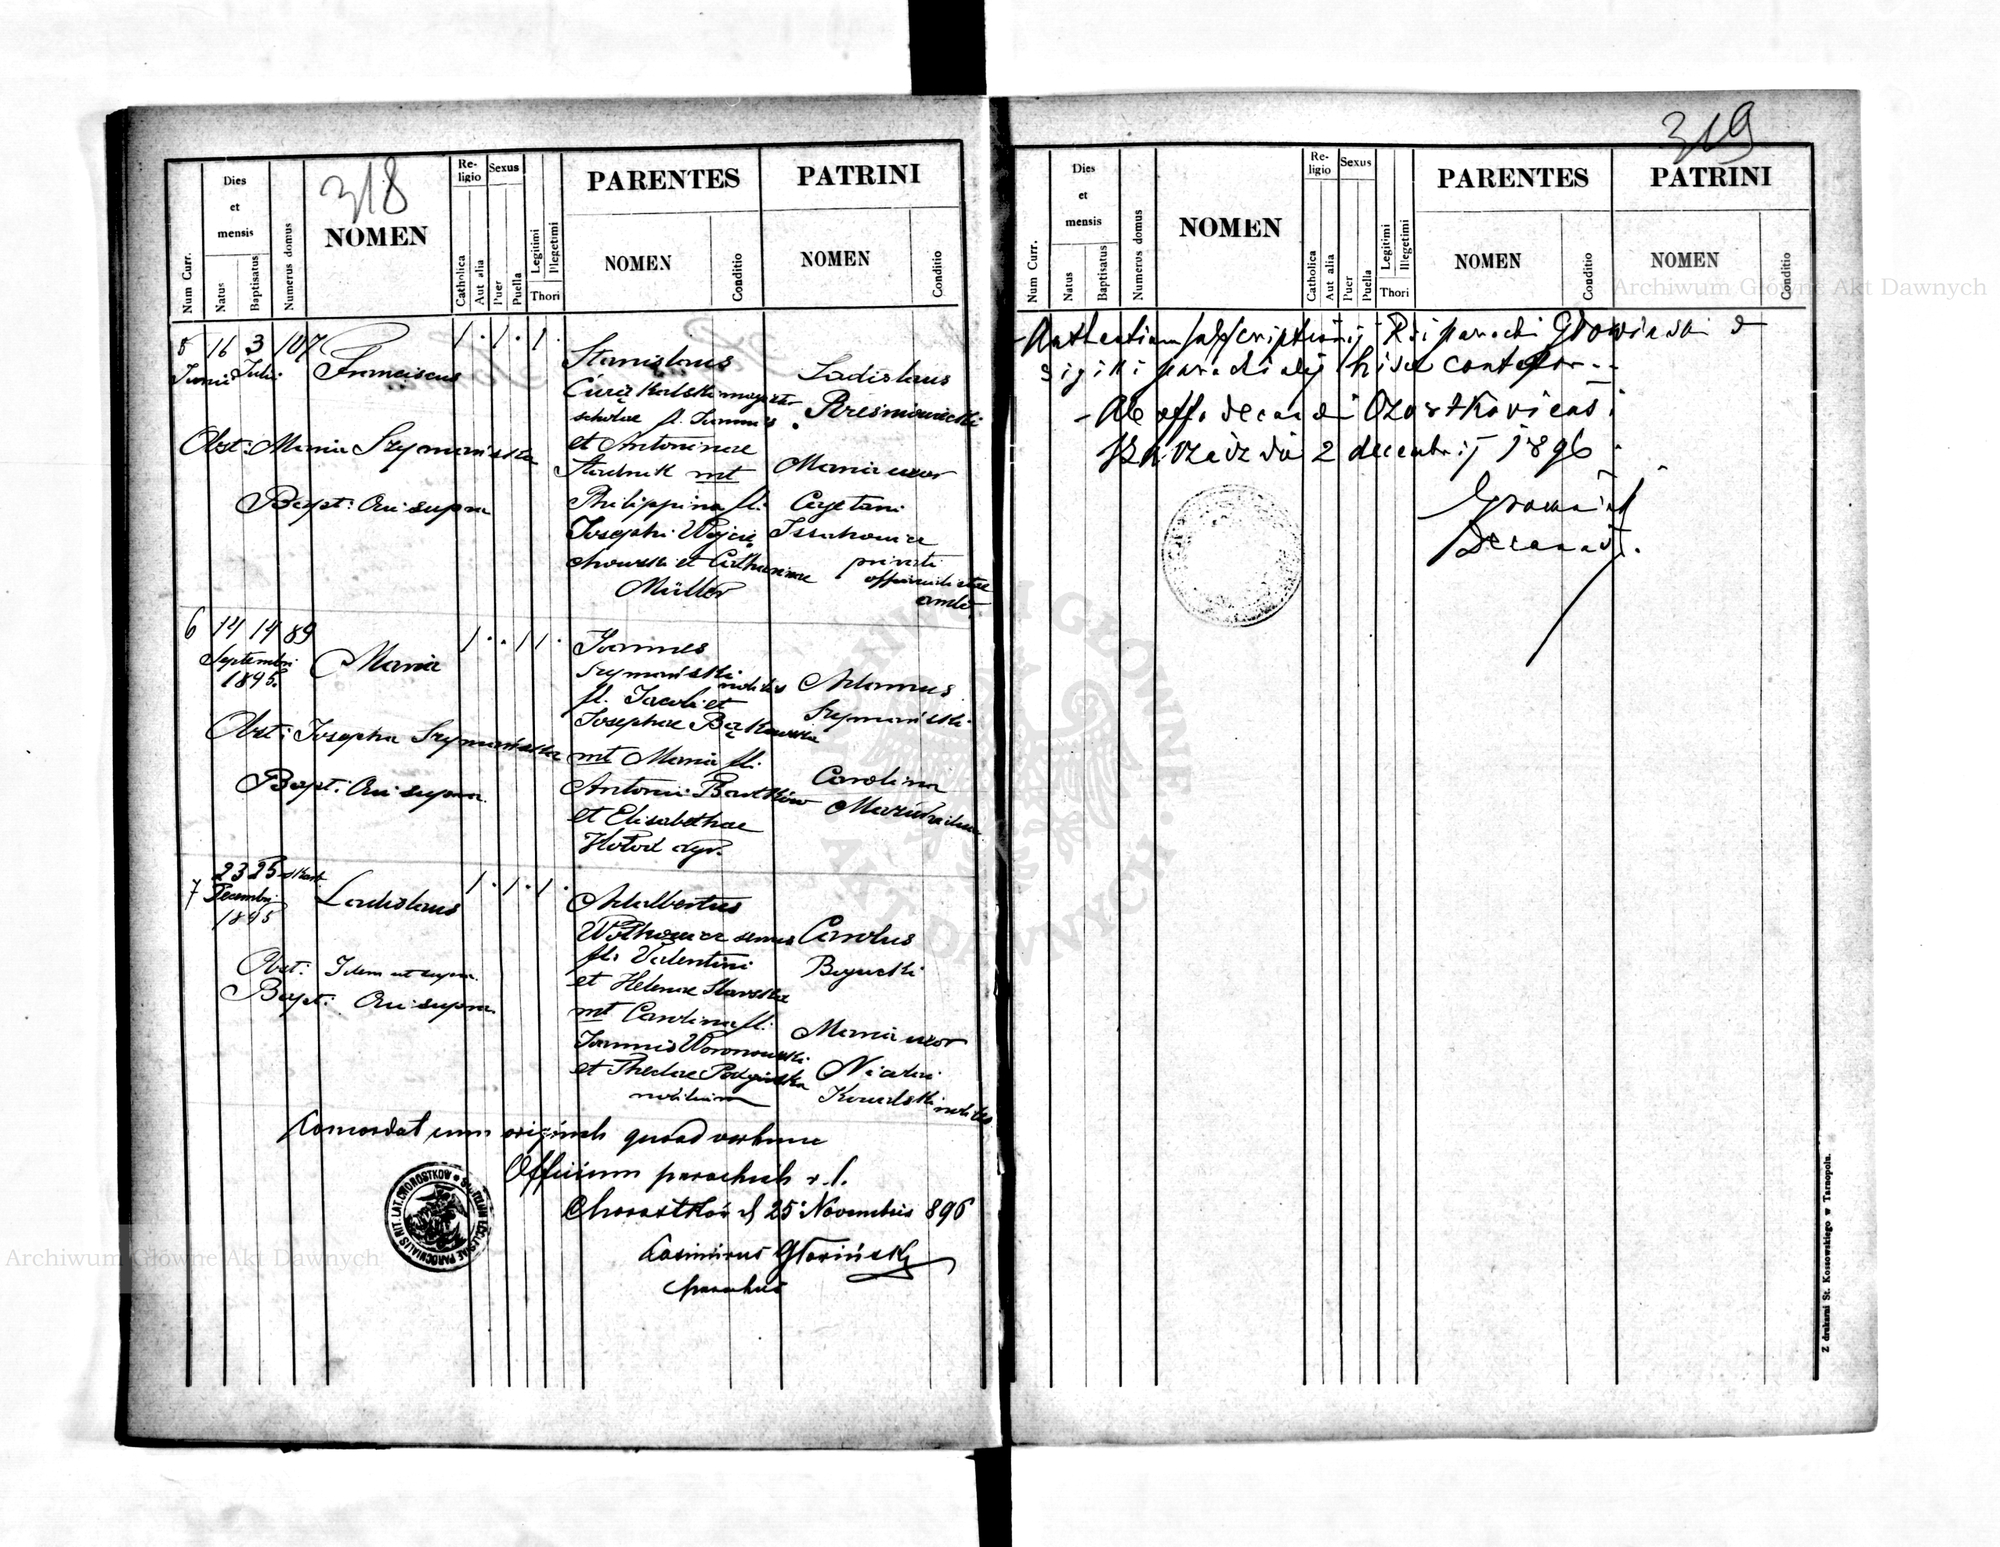 318
Num Curr.
Dies
et
mensis
Natus
Baptisatus
Numerus domus
NOMEN
Re-
ligio
Catholica
Aut alia
Sexus
Puer
Puella
Legitimi
Illegetimi
Thori
PARENTES
NOMEN
Conditio
PATRINI
NOMEN
Conditio
5 16 3 107
Junii Julii
Franciscus
1 . 1 . 1 .
Obst: Maria Szymańska
Bapt: Qui supra
Stanislaus
scholae fl. Joannis
et Antoninae
mt
Philippina fl.
Josephi
et Catharinae
Müller
Ladislaus
Maria uxor
Cajetani
privati
ambo
6 14 14 89
Septembris
1895.
Maria
1 . . 1 1 .
Obst: Josepha Szymańska
Bapt: Qui supra.
Joannes
Szymański nobiles
fl. Jacobi et
Josephae Bąkowska
mt Maria fl.
Antonii Bartków
et Elisabethae
Hołod agr.
Adamus
Szymański
Carolina
7 23 25
Decembris
1895
Ladislaus
1 . 1 . 1 .
Obst: Idem ut supra.
Bapt: Qui supra
Adalbertus
fl. Valentini
et Helenae
mt Carolina fl.
Joannis Woronowski
et Theclae
nobilium
Carolus
Bogucki
Maria uxor
Nicolai
Kowalski nobiles
Concordat cum originali quoad verbum
Officium parochiale r. l.
Chorostków d 25 Novembris 896
Casimirus Głowiński
parochus
SIGILLUM ECCLESIAE PAROCHIALIS RIT. LAT. CHOROSTKOW
319
Num Curr.
Dies
et
mensis
Natus
Baptisatus
Numerus domus
NOMEN
Re-
ligio
Catholica
Aut alia
Sexus
Puer
Puella
Legitimi
Illegetimi
Thori
PARENTES
NOMEN
Conditio
PATRINI
NOMEN
Conditio
subscriptionis Rdi parochi Głowiński &
sigilli parochialis hisce contestor
Ab offo decanali
2 decembris 1896
Decanus.
Z drukarni St. Kossowskiego w Tarnopolu.
Archiwum Główne Akt Dawnych
Archiwum Główne Akt Dawnych
ARCHIWUM GŁÓWNE AKT DAWNYCH